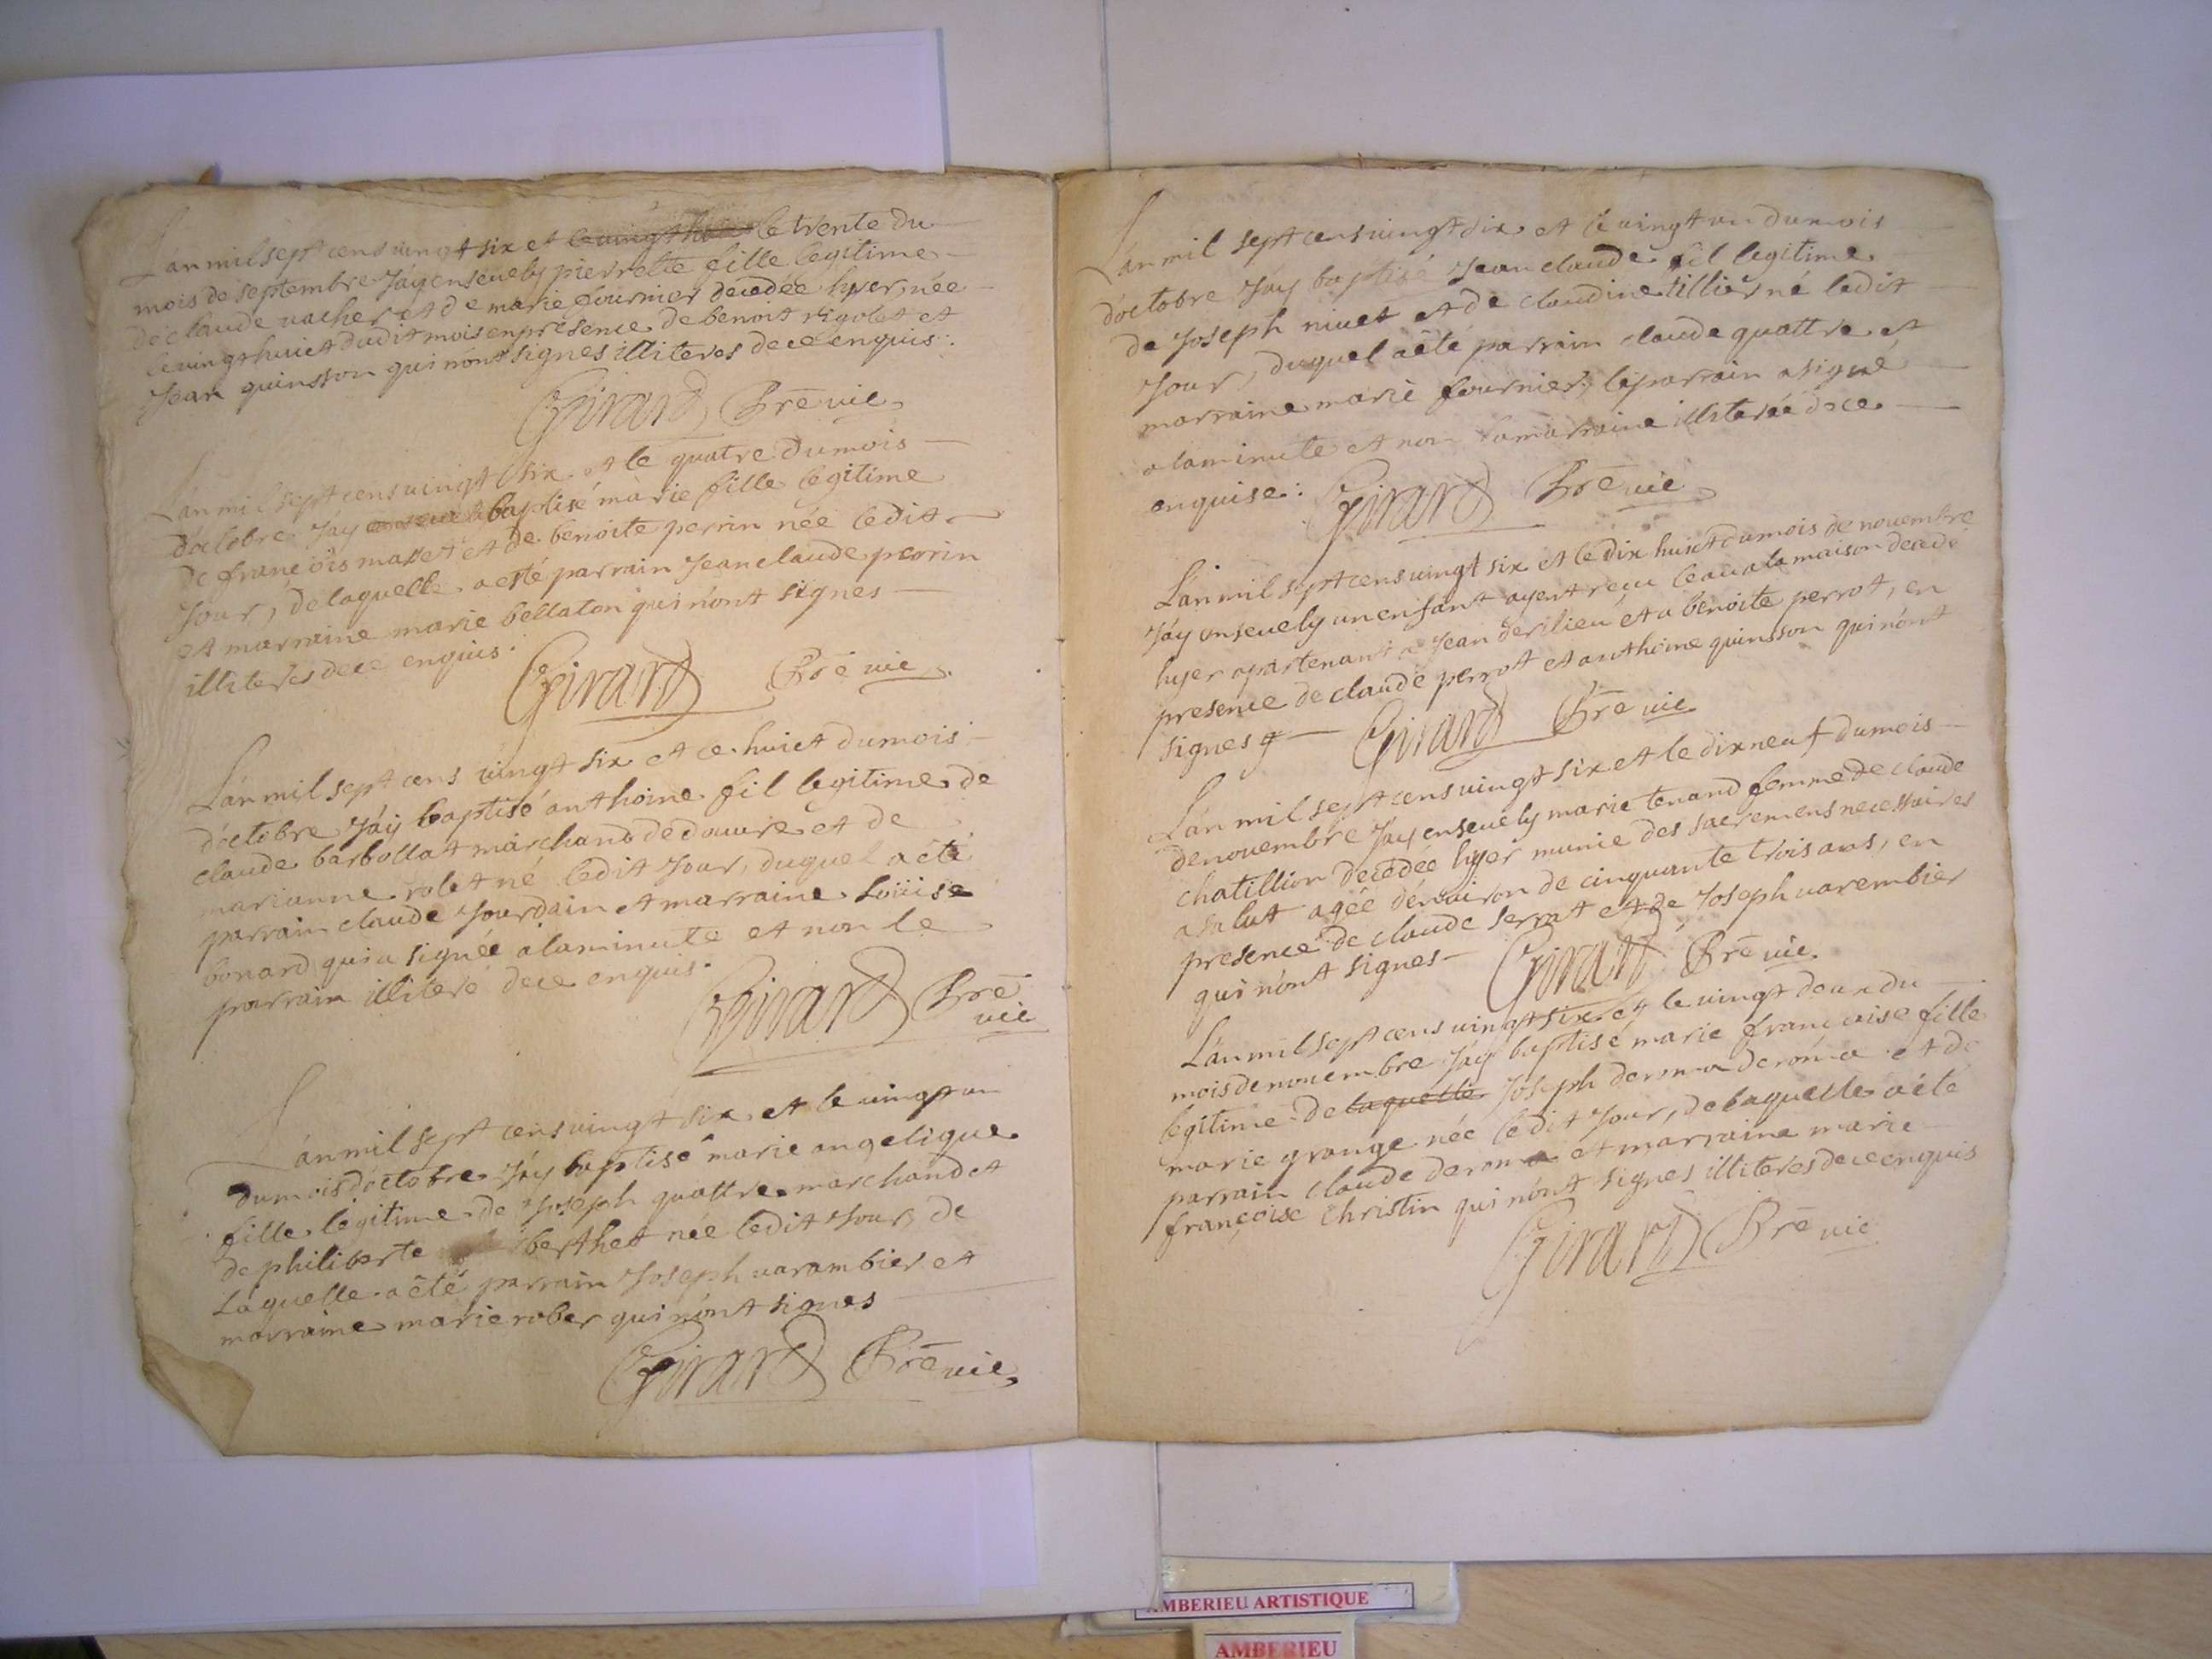 L'an mil sept cens vingt six et le vingt huit le trente du
mois de septembre J'ay ensevely pierrette fille legitime
de claude vacher et de marie fournier decedée hyer, née
le vingt huict dudit mois en présence de benoit rigolet et
Jean quinsson qui n'ont signes illiteres de ce enquis.
Girard Prē vic
L'an mil sept cens vingt six et le quatre du mois
d'octobre J'ay baptisé marie fille legitime
de françois masset et de benoite perrin née ledit
Jour, de laquelle a esté parrain Jean claude perrin
et marraine marie bellaton qui n'ont signes
illiteres de ce enquis.
Girard Prē vic
L'an mil sept cens vingt six et le huict du mois
d'octobre J'ay baptisé anthoine fil legitime de
claude barbollat marchand de douvre et de
marianne rolet né ledit Jour, duquel a été
parrain claude Jourdain et marraine Loüise
bonard qui a signée a la minute et non le
parrain illiteré de ce enquis.
Girard Prē
vic
L'an mil sept cens vingt six et le vingt un
du mois d'octobre J'ay baptisé marie angelique
fille legitime de Joseph quattre marchand et
de philiberte berthet née ledit Jour, de
laquelle a été parrain Joseph varambier et
marraine marie rober qui n'ont signes
Girard Prē vic
L'an mil sept cens vingt six et le vingt un du mois
d'octobre J'ay baptisé Jean claude fil legitime
de Joseph nivet et de claudine tillier né ledit
Jour, duquel a été parrain claude quattre et
marraine marie fournier, le parrain a signé
a la minute et non la marraine illiterée de ce
enquise: Girard Prē vic
L'an mil sept cens vingt six et le dix huict du mois de novembre
J'ay ensevely un enfant ayent reçu l'eau a la maison decedé
hyer apartenant a Jean derilieu et a benoite perrot, en
presence de claude perrot et anthoine quinsson qui n'ont
signes Girard Prē vic
L'an mil sept cens vingt six et le dix neuf du mois
de novembre J'ay ensevely marie tenand femme de claude
chatillion decedée hyer munie des sacremens necessaires
a salut agée d'environ de cinquante trois ans, en
presence de claude serrat et de Joseph varembier
qui n'ont signes Girard Prē vic
L'an mil sept cens vingt six et le vingt deux du
mois de novembre J'ay baptisé marie françoise fille
legitime de laquelle Joseph deroma deroma et de
marie grange née ledit Jour, de laquelle a été
parrain claude deroma et marraine marie
françoise christin qui n'ont signes illiteres de ce enquis
Girard Prē vic
AMBERIEU ARTISTIQUE
AMBERIEU